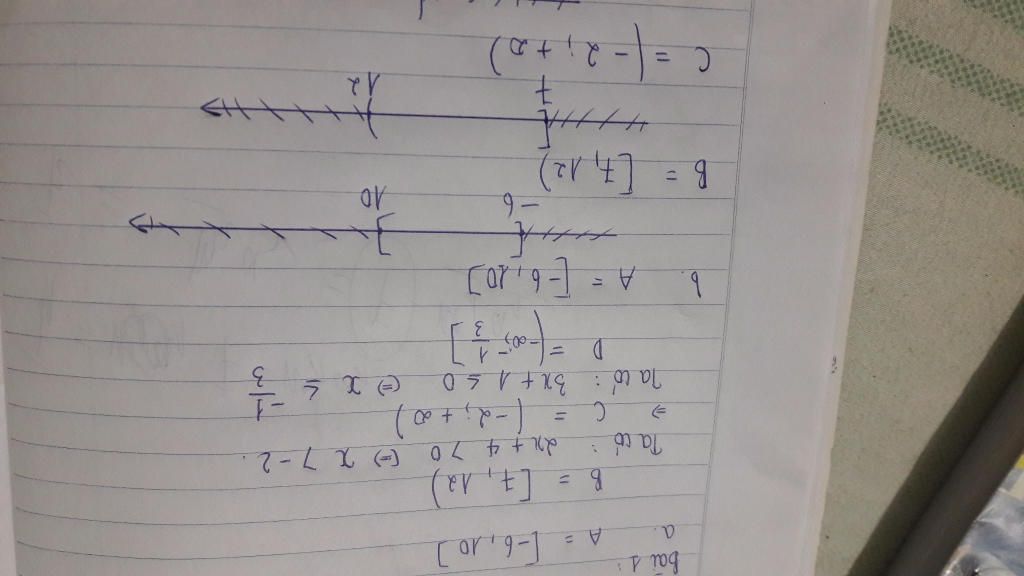 Bài 1:
a. A = [-6, 10]
B = [7, 12)
Ta có: 2x + 4 > 0 (=) x > -2.
=> C = (-2; +∞)
Ta có: 3x + 1 ≤ 0 (=) x ≤ -1/3
D = (-∞; -1/3]
b. A = [-6, 10]
-6 10
B = [7, 12)
7 12
C = (-2; +∞)